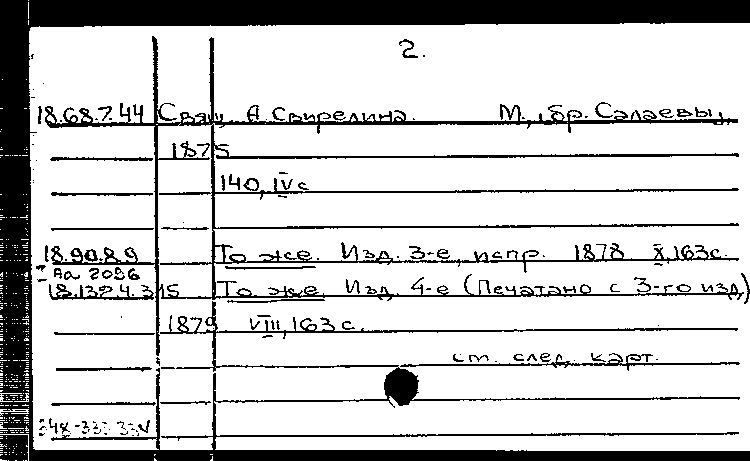 2.
18.68.7.44 Свящ. А. Свирелина. М., бр. Салаевы,
1875
140, IV с
18.90.8.9 То же. Изд. 3-е, испр. 1878 X, 163 с.
Аа 2096
18.139.4.315 То же. Изд. 4-е (Печатано с 3-го изд)
1879. VIII, 163 с.
см. след. карт.